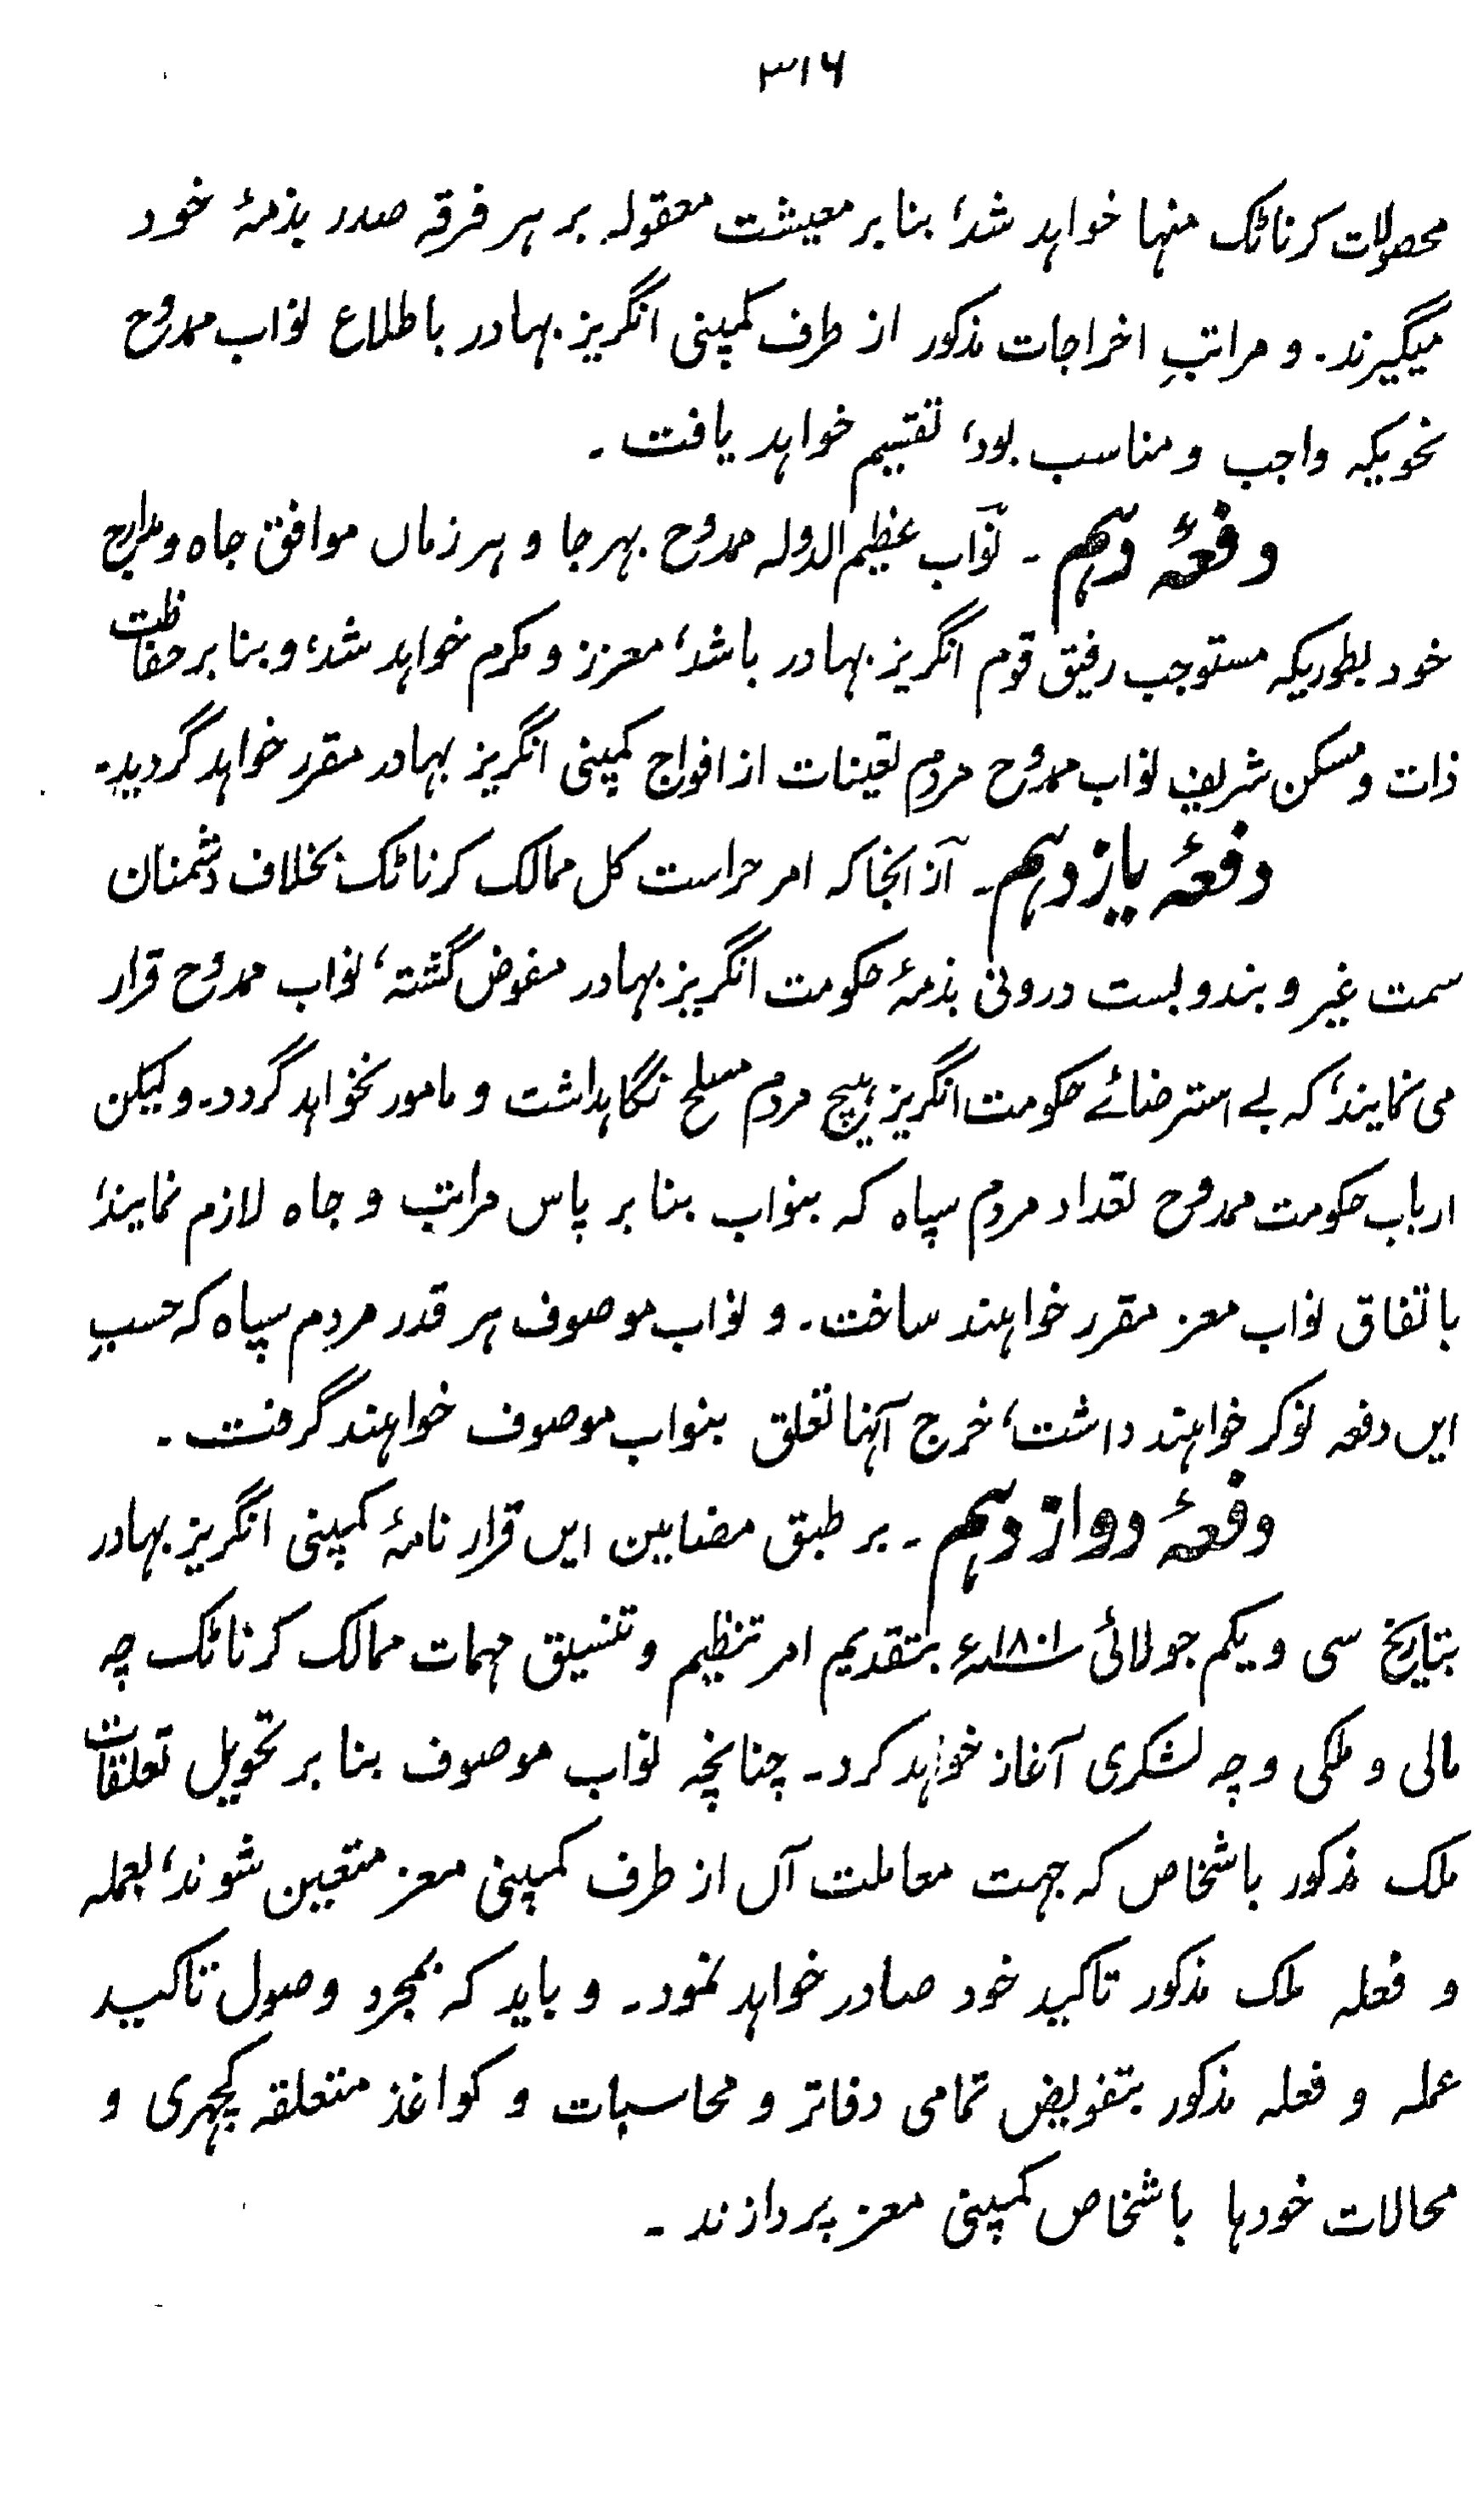 ۳۱۶
محصولات کرناٹک منہا خواہد شد، بنا بر معیشت معقولہ بر ہر فرقہ صدر بذمۂ خود
میگیرند۔ و مراتبِ اخراجات مذکور از طرف کمپنی انگریز بہادر باطلاع نواب ممدوح
نحویکہ واجب و مناسب بود، تقسیم خواہد یافت۔
دفعۂ دہم۔ نوّاب عظیم الدولہ ممدوح بہر جا و ہر زماں موافق جاہ و مدارج
خود بطوریکہ مستوجب رفیق قوم انگریز بہادر باشد، معزز و مکرم خواہد شد، و بنا بر حفاظت
ذات و مسکن شریف نواب ممدوح مردم تعینات از افواج کمپنی انگریز بہادر مقرر خواہد گردید۔
دفعۂ یازدہم۔ آز انجا کہ امر حراست کل ممالک کرناٹک بخلاف دشمنان
سمت غیر و بندوبست درونی بذمۂ حکومت انگریز بہادر مفوض گشتہ، نواب ممدوح قرار
می نمایند، کہ بے استرضائے حکومت انگریز ہیچ مردم مسلح نگاہداشت و مامور نخواہد گردد۔ ولیکن
ارباب حکومت ممدوح تعداد مردم سپاہ کہ بنواب بنا بر پاس مراتب و جاہ لازم نمایند،
باتفاق نواب معز مقرر خواہند ساخت۔ و نواب موصوف ہر قدر مردم سپاہ کہ حسبِ
ایں دفعہ نوکر خواہند داشت، خرج آنہا تعلق بنواب موصوف خواہند گرفت۔
دفعۂ دوازدہم۔ بر طبق مضامین ایں قرار نامۂ کمپنی انگریز بہادر
بتاریخ سی و یکم جولائی ۱۸۰۱ء بتقدیم امر تنظیم و تنسیق مہمات ممالک کرناٹک چہ
مالی و ملکی و چہ لشکری آغاز خواہد کرد۔ چنانچہ نواب موصوف بنا بر تحویل تعلقات
ملک مذکور باشخاص کہ جہت معاملت آں از طرف کمپنی معز متعین شوند، بعملہ
و فعلہ ملک مذکور تاکید خود صادر خواہد نمود۔ و باید کہ بمجرد وصول تاکید
عملہ و فعلہ مذکور بتفویض تمامی دفاتر و محاسبات و کواغذ متعلقہ کچہری و
محالات خودہا باشخاص کمپنی معز پردازند۔